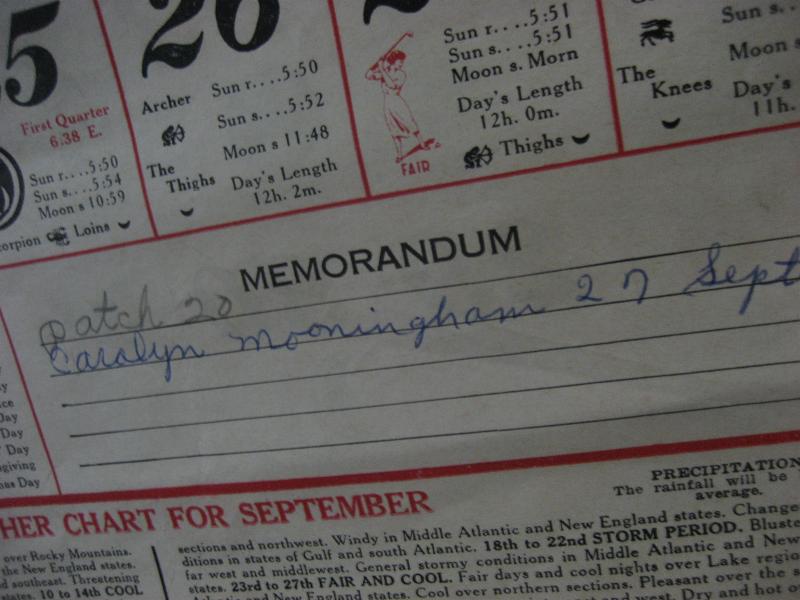 5
26
2
First Quarter
6.38 E.
Sun r....5:50
Sun s....5:54
Moon s 10:59
corpion Loins
Archer
Sun r....5:50
Sun s....5:52
Moon s 11:48
The
Thighs
Day's Length
12h. 2m.
FAIR
Sun r....5:51
Sun s....5:51
Moon s. Morn
Day's Length
12h. 0m.
Thighs
Sun s..
Moon s
The
Knees
Day's
11h.
MEMORANDUM
Patch 20
Caralyn Mooningham 27 Sept
Day
Day
Day
giving
Day
HER CHART FOR SEPTEMBER
PRECIPITATION
The rainfall will be
average.
over Rocky Mountains.
the New England states.
d southeast. Threatening
states. 10 to 14th COOL
sections and northwest. Windy in Middle Atlantic and New England states. Change
ditions in states of Gulf and south Atlantic. 18th to 22nd STORM PERIOD. Bluste
far west and middlewest. General stormy conditions in Middle Atlantic and New
states. 23rd to 27th FAIR AND COOL. Fair days and cool nights over Lake regio
Atlantic and New England states. Cool over northern sections. Pleasant over the s
and west. Dry and hot o